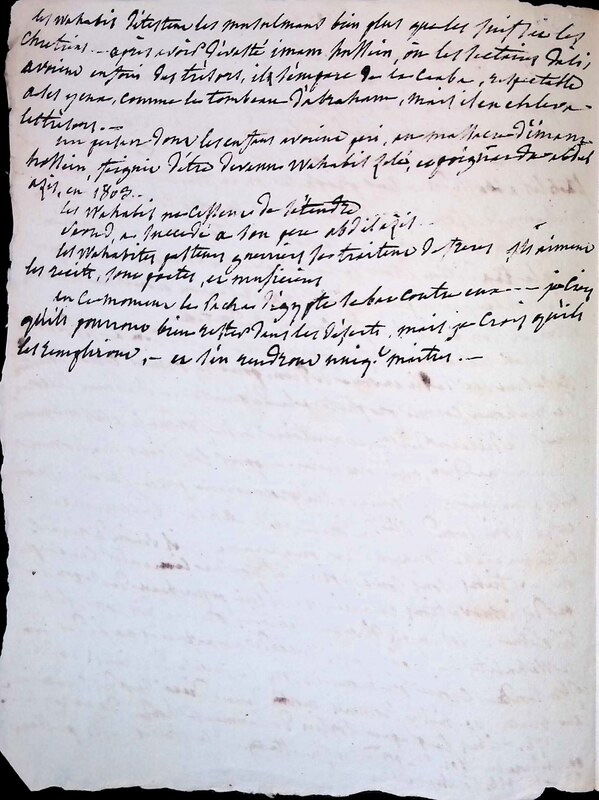 les Wahabis détestent les musulmans bien plus que les juifs et les
chrétiens. — après avoir dévasté imam hossein, où les sectaires d'ali,
avoient enfoui des trésors, il s'empare de la Caaba, respectable
a ses yeux, comme le tombeau d'abraham, mais il en enleva
les trésors. —
un persan dont les enfans avoient péri, au massacre d'imam
hossein, feignit d'être devenu Wahabis zélé, et poignarda abdel
azis, en 1803.
les Wahabis ne cessent de s'étendre
Seoud, a succédé a son père abdelazis.
les Wahabites pasteurs guerriers se traitent de frères ils aiment
les récits, sont poetes, et musiciens
en ce moment le Pacha d'égypte se bat contre eux — je crois
qu'ils pourront bien rester dans les déserts, mais je crois qu'ils
les rempliront, — et s'en rendront uniq.t maitres. —